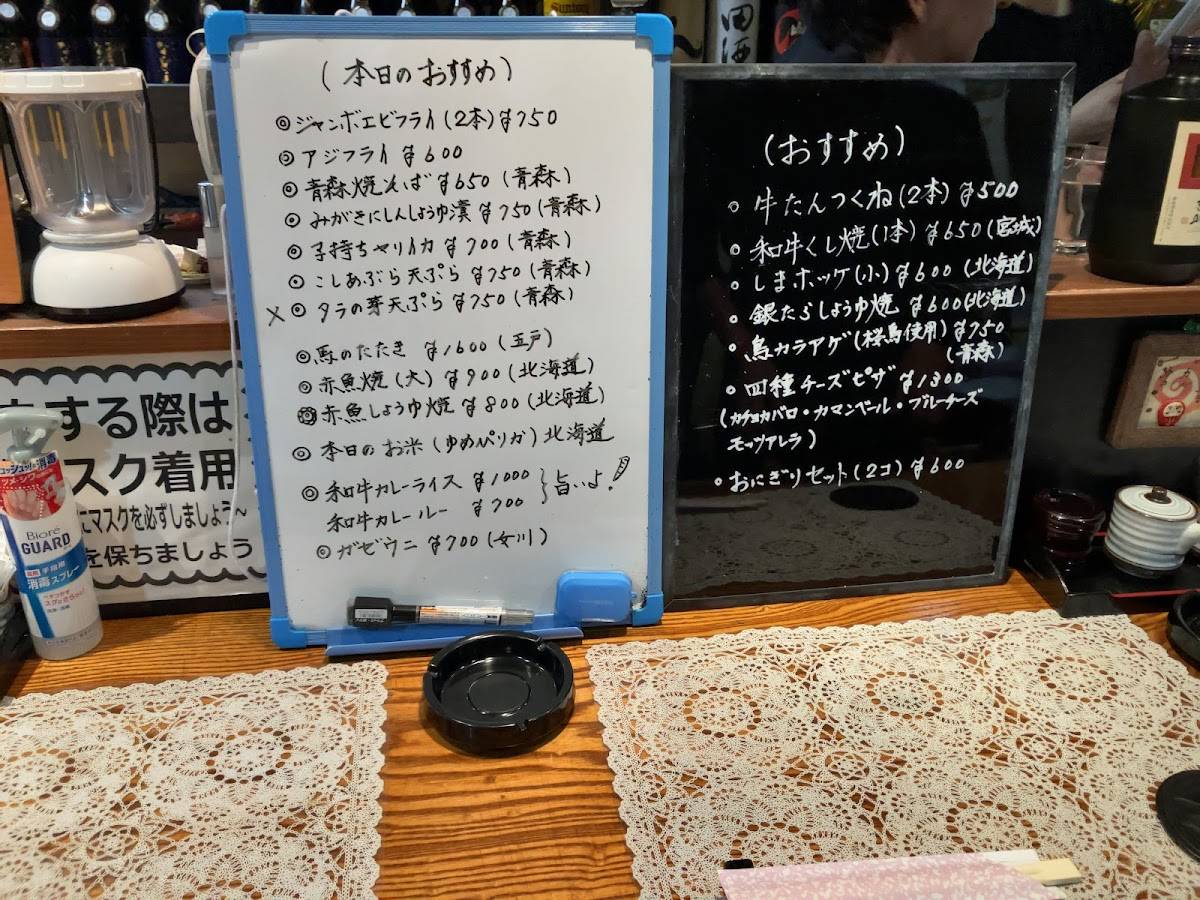 (本日のおすすめ)
◎ジャンボエビフライ(2本)¥750
◎アジフライ ¥600
◎青森焼そば ¥650(青森)
◎みがきにしんしょうゆ漬 ¥750(青森)
◎子持ちヤリイカ ¥700(青森)
◎こしあぶら天ぷら ¥750(青森)
×◎タラの芽天ぷら ¥750(青森)
◎馬のたたき ¥1600(五戸)
◎赤魚焼(大)¥900(北海道)
◎赤魚しょうゆ焼 ¥800(北海道)
◎本日のお米(ゆめぺリカ)北海道
◎和牛カレーライス ¥1000
和牛カレールー ¥700
}旨いよ!
◎ガゼウニ ¥700(女川)
(おすすめ)
○牛たんつくね(2本)¥500
○和牛くし焼(1本)¥650(宮城)
○しまホッケ(小)¥600(北海道)
○銀たらしょうゆ焼 ¥600(北海道)
○鳥カラアゲ(桜鳥使用)¥750
(青森)
○四種チーズピザ ¥1300
(カチョカバロ・カマンベール・ブルーチーズ
モッツアレラ)
○おにぎりセット(2コ)¥600
する際は
スク着用
にマスクを必ずしましょう〜
を保ちましょう
Bioré
GUARD
手指用
消毒スプレー
田酒
Suntory